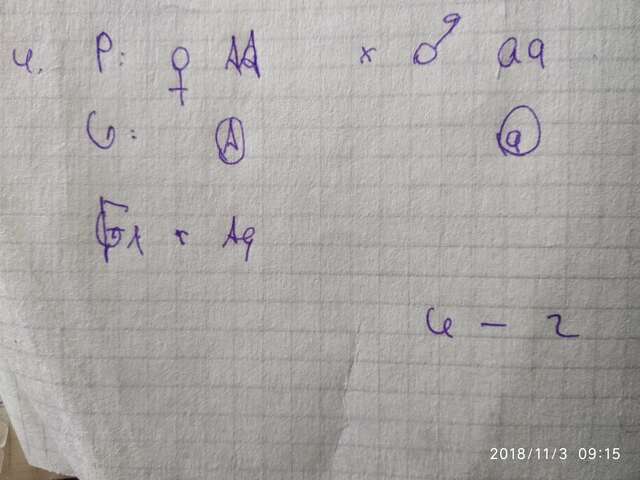 4. P: ♀ AA × ♂ aa
G: A a
F1 × Aa
4 – 2
2018/11/3 09:15